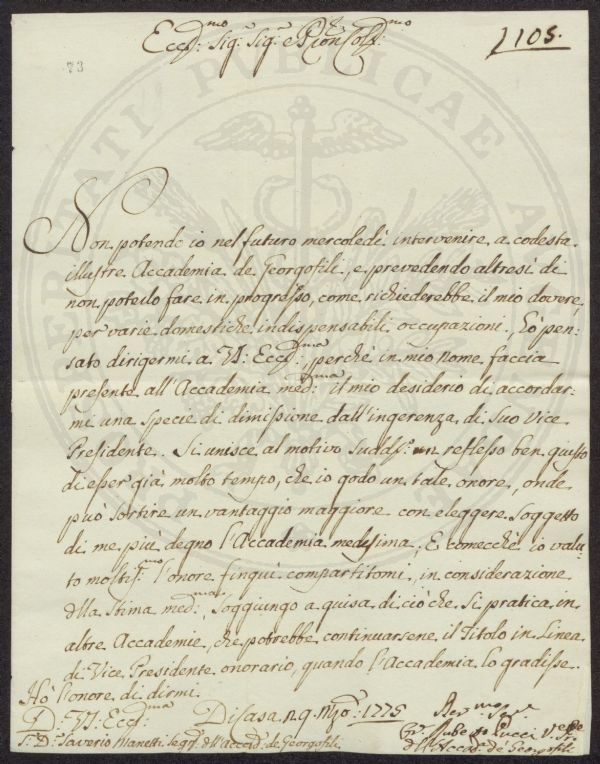 Ecc.mo Sig.r Sig.r e P.ron Col.mo
1105.
73
Non potendo io nel futuro mercoledì intervenire a codesta
illustre Accademia de Georgofili, e prevedendo altresì di
non poterlo fare in progresso, come richiederebbe il mio dovere,
per varie domestiche indispensabili occupazioni, hò pen-
sato dirigermi a VS. Ecc.ma, perchè in mio nome faccia
presente all'Accademia med.ma il mio desiderio di accordar-
mi una specie di dimissione dall'ingerenza di suo Vice
Presidente. Si unisce al motivo sudd.o un reflesso ben giusto
di esser già molto tempo, che io godo un tale onore, onde
può sortire un vantaggio maggiore con eleggere soggetto
di me più degno l'Accademia medesima, E comecchè io valu-
to moltiss.mo l'onore finquì compartitomi, in considerazione
della stima med.ma, soggiungo a guisa di ciò che si pratica in
altre Accademie, che potrebbe continuarsene il Titolo in Linea
di Vice Presidente onorario, quando l'Accademia lo gradisse.
Hò l'onore di dirmi.
D. VS. Ecc.ma Di Casa 29. Mgo. 1775
S.r D.r Saverio Manetti Seg.rio dell'Accad.a de Georgofili.
Uberto Lucci V.e Pre
dell'Accad.a de Georgofili.
PUBLICAE